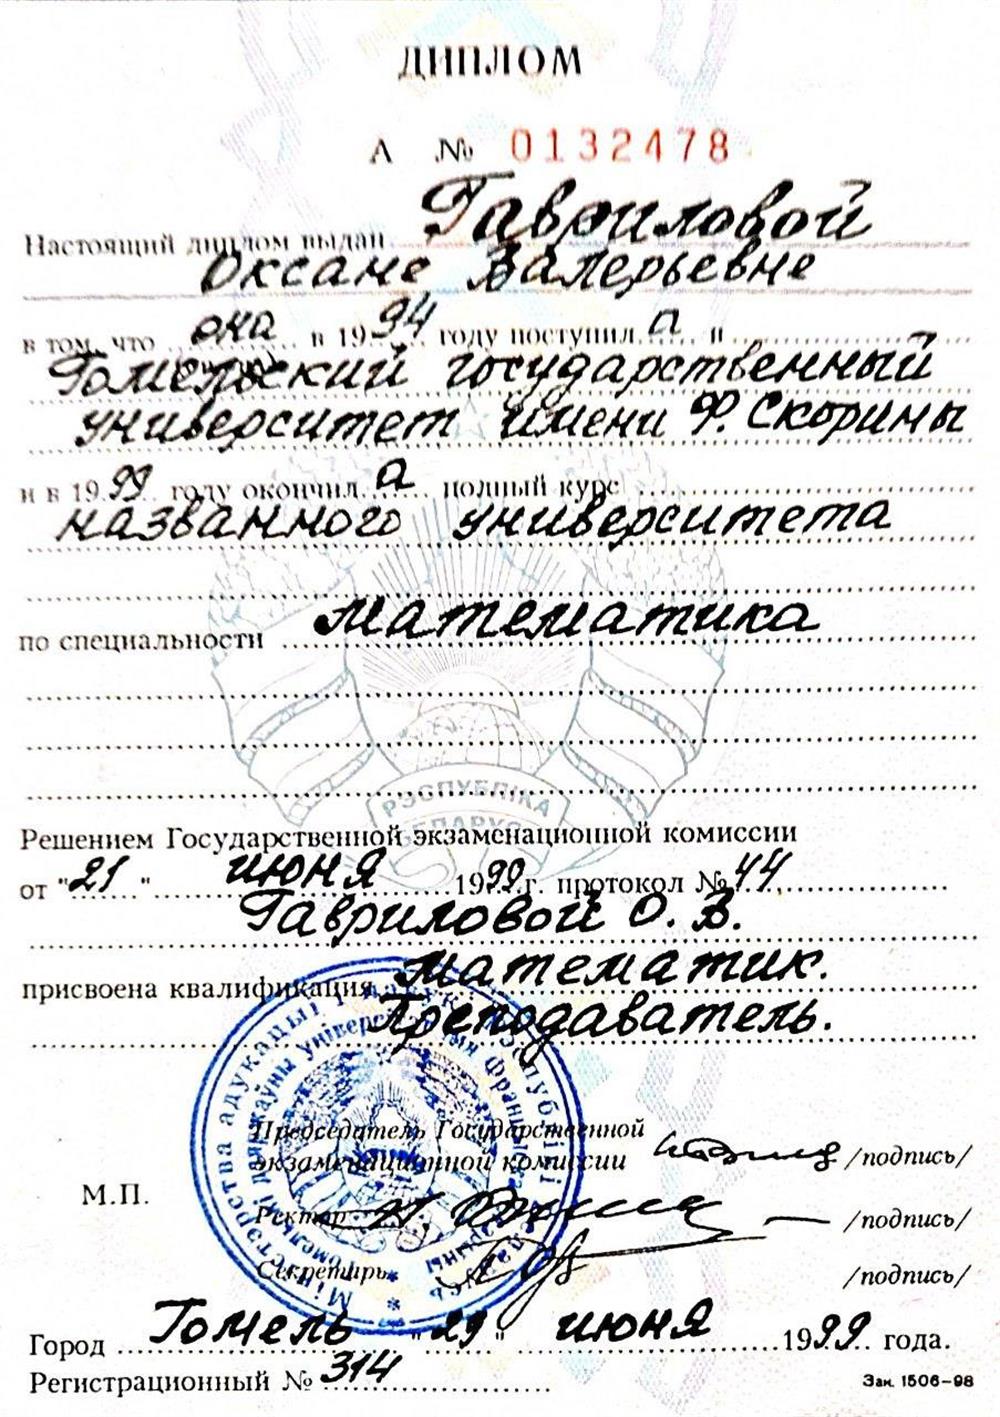 ДИПЛОМ
А № 0132478
Настоящий диплом выдан Гавриловой
Оксане Валерьевне
в том, что она в 1994 году поступила в
Гомельский государственный
университет имени Ф. Скорины
и в 1999 году окончила полный курс
названного университета
по специальности математика
РЭСПУБЛІКА
БЕЛАРУСЬ
Решением Государственной экзаменационной комиссии
от "21" июня 1999 г. протокол № 44
Гавриловой О. В.
присвоена квалификация математик.
Преподаватель.
Міністэрства адукацыі Рэспублікі Беларусь
Гомельскі дзяржаўны універсітэт імя Францыска Скарыны
Председатель Государственной
экзаменационной комиссии /подпись/
М.П.
Ректор /подпись/
Секретарь /подпись/
Город Гомель "29" июня 1999 года.
Регистрационный № 314
Зак. 1506-98